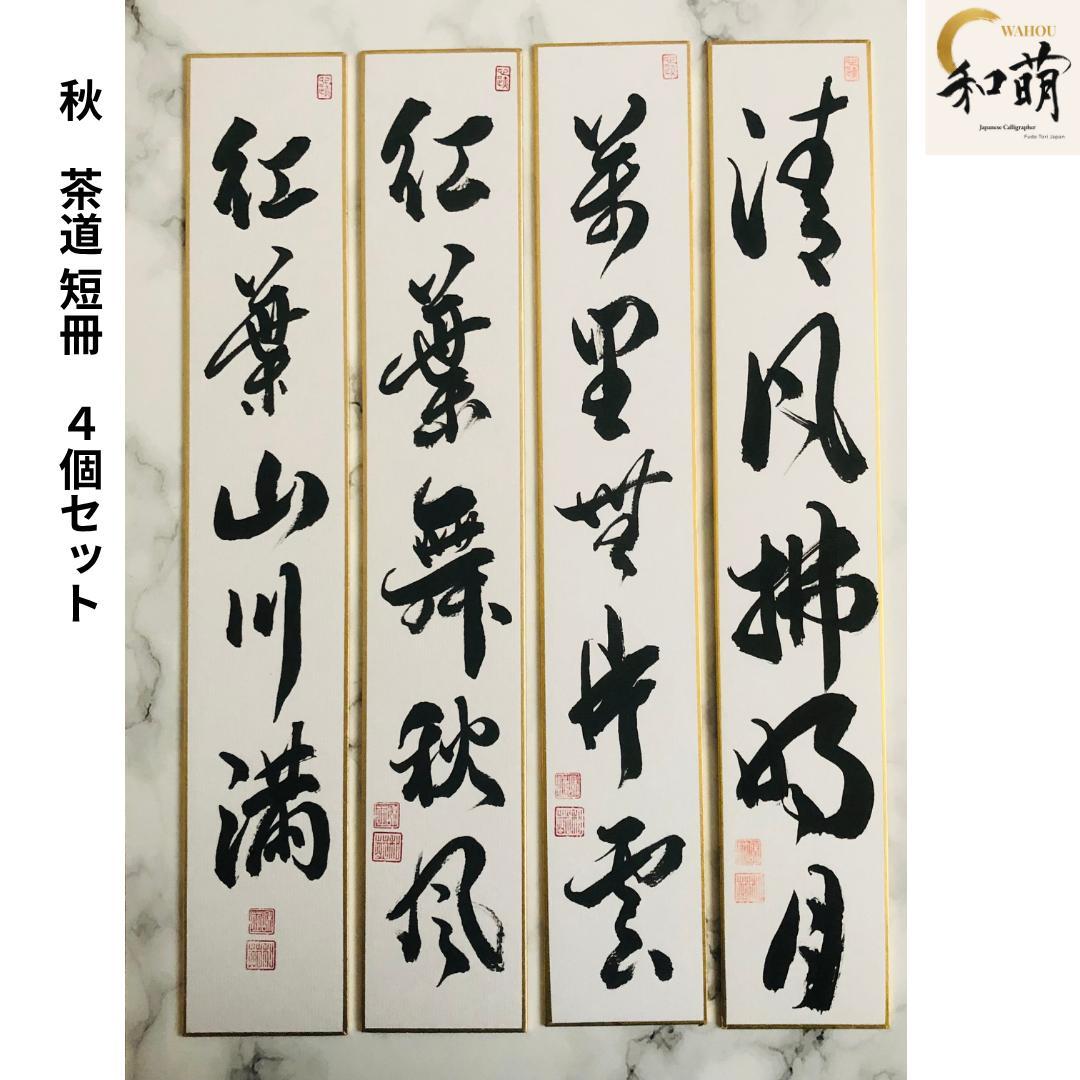 秋 茶道 短冊 4個セット
WAHOU
和萌
Japanese Calligrapher
Fude Tori Japan
清風拂明月
萬里無片雲
紅葉舞秋風
紅葉山川満